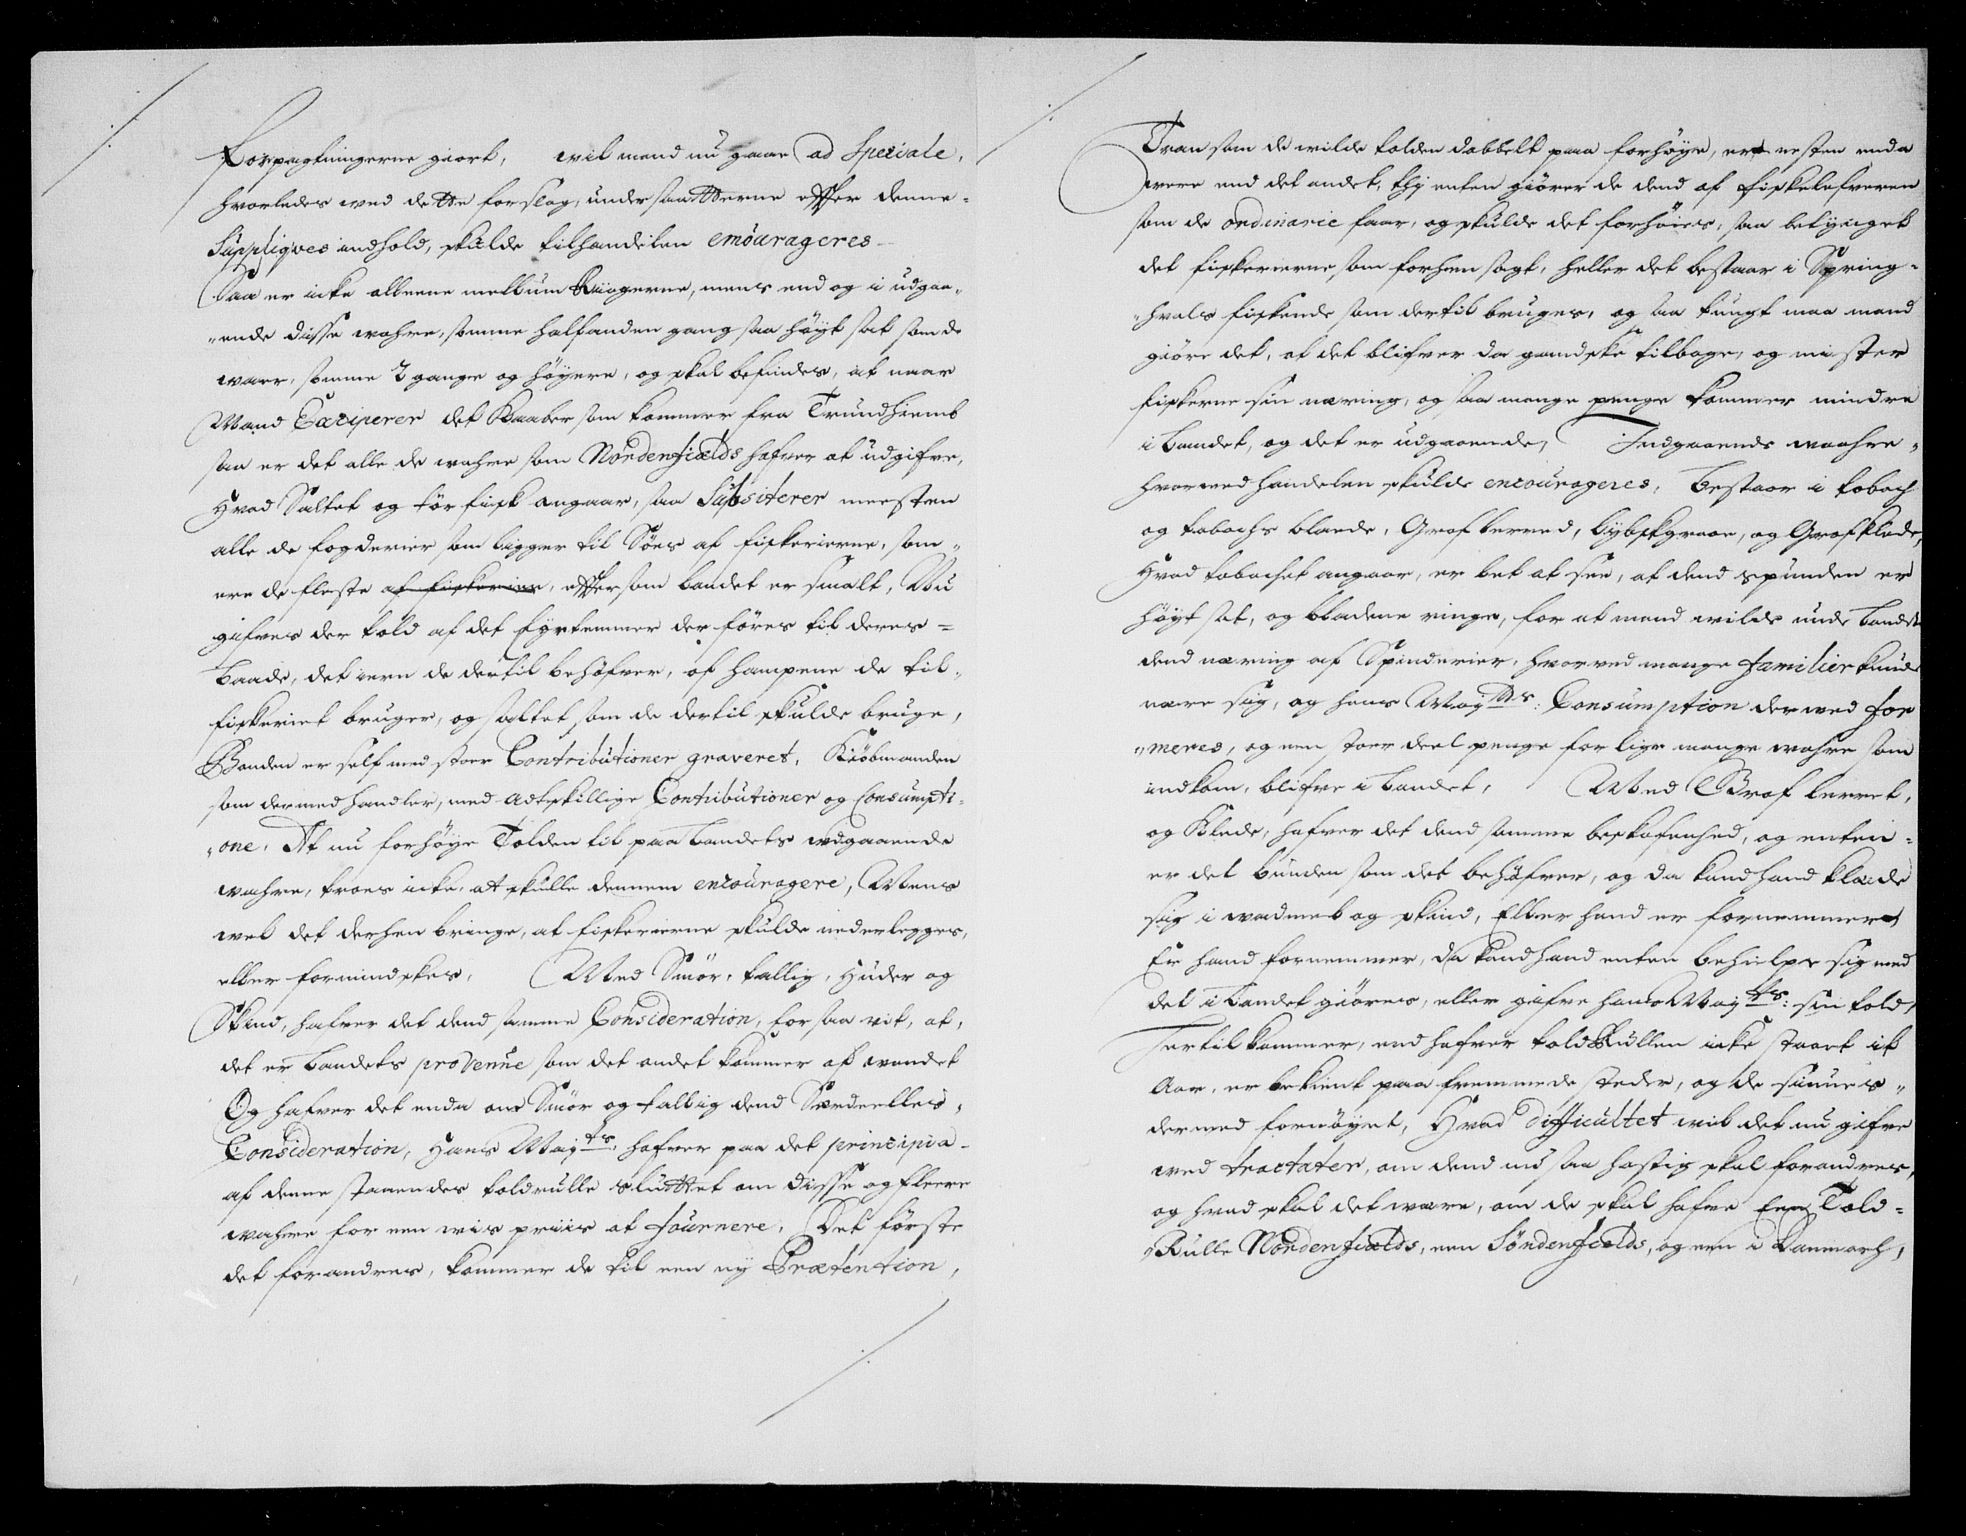 Forpagtningerne giort, wil mand nu gaae ad Speciale,
hvorledes med dette forslag, undersaatterne effter denne
Suppliqves indhold, skulde tilhandelen encourageres
Saa er icke alleene mellum Riigerne, mens end og i udgaa-
ende disse wahre, somme halfanden gang saa høyt sat som de
waar, somme 2 gange og høyere, og skal befindes, at naar
Mand Exciperer det Kaaber som kommer fra Trundhiemb
saa er det alle de wahre som Nordenfields hafver at udgifve,
Hvad Saltet og tør fisk angaar, saa Subsisterer meesten
alle de fogderier som ligger til Søes af fiskerierne, som
ere de fleste af fiskerier, effter som landet er smalt, Nu
gifves der told af det Fyrtemmer der føres til deres
Baade, det iern de dertil behøfver, af hampene de til
fiskeriet bruger, og saltet som de dertil skulde bruge,
Bonden er self med stoer Contributioner graveret, Kiøbmanden
som dermed handler, med adskillige Contributioner og Consumpti-
one. At nu forhøye Tolden til paa Landets udgaaende
wahre, troes icke, at skulle dennem encouragere, Mens
wel det derhen bringe, at fiskerierne skulde nederlegges,
eller formindskes, Med Smør, tallig, Huder og
Skind, hafver det dend samme Consideration, for saa vit, at,
det er Landets provenue som det andet kommer af wandet
Og hafver det enda om Smør og tallig dend Særdeelles
Consideration, Hans Mayts: hafver paa det principia
af denne staaendes toldrulle sluttet om disse og fleere
wahre for een wis priis at fournere, Det første
det forandres, kommer de til een ny Prætention,
Tran som de wilde tolden dobbelt paa forhøye, er nesten enda
mere end det andet, thj enten giører de dend af fiskelefveren
som de ordinarie faar, og skulde det forhøies, saa betynget
det fiskerierne som forhen sagt, heller det bestaar i Spring-
hvals fiskende som dertil bruges, og saa tungt maa mand
giøre det, at det blifver da gandske tilbage, og mister
fiskerne sin næring, og saa mange penge kommer mindre
i Landet, og det er udgaaende, Indgaaende waahre
hvormed handelen skulde encourageres, Bestaar i tobach
og tobachs blaede, Grof lerred, Lybskgraae, og Grofklæde,
Hvad tobachet angaar, er let at see, at dend spunden er
høyt sat, og bladene ringe, for at mand wilde unde Landet
dend næring af Spinderier, hvorved mange familier kunde
nære sig, og hans Mayts: Consumption der ved for
meres, og een stoer deel penge for lige mange wahre som
indkom, blifve i Landet, Med Grof lerret,
og Klæde, hafver det dend samme beskafenhed, og enten
er det bunden som det behøfver, og da kand hand klæde
sig i wadmel og skind, Eller hand er fornemmere
Er hand fornemmer, da kand hand enten behielpe sig med
det i Landet giøres, eller gifve hans Mayts: sin told,
Hertil kommer, end hafver toldRullen icke staaet it
Aar, er bekient paa fremmede steder, og de siunes
dermed fornøyet, Hvad difficultet wil det nu gifve
ved tractater, om dend nu saa hastig skal forandres,
og hvad skal det være, om de skal hafve Een Told-
Rulle Nordenfields, een Søndenfields, og een i Danmarch,